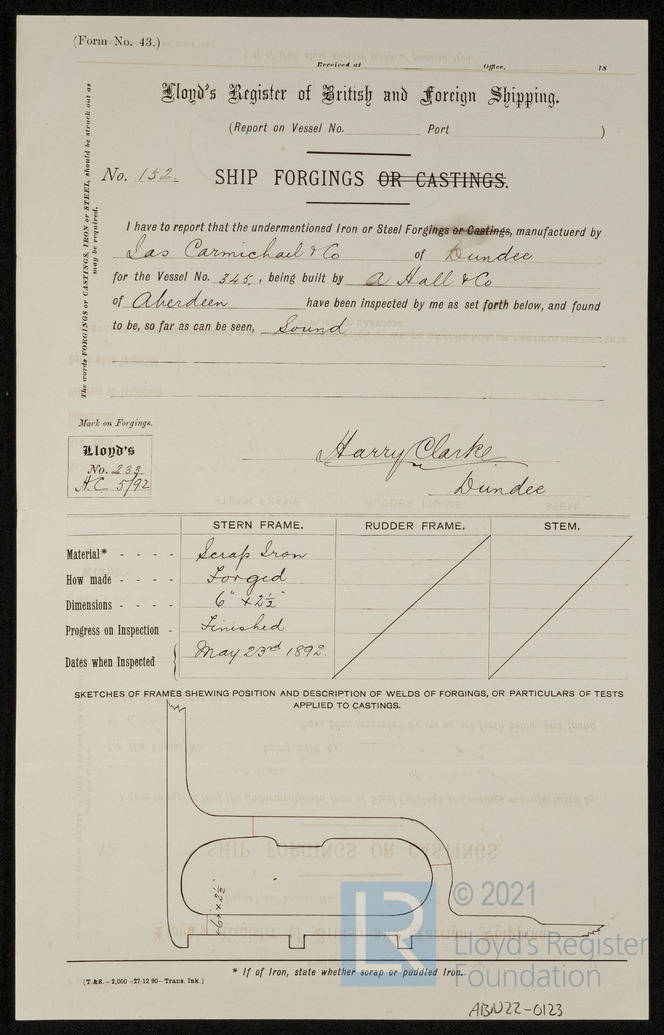 (Form No. 43.)
Received at Office, 18
Lloyd's Register of British and Foreign Shipping.
(Report on Vessel No. Port )
The words FORGINGS or CASTINGS, IRON or STEEL, should be struck out as
may be required.
No. 152. SHIP FORGINGS OR CASTINGS.
I have to report that the undermentioned Iron or Steel Forgings or Castings, manufactuerd by
Jas Carmichael & Co of Dundee
for the Vessel No. 345, being built by A Hall & Co
of Aberdeen have been inspected by me as set forth below, and found
to be, so far as can be seen, Sound
Mark on Forgings.
Lloyd's
No. 233
H.C. 5/92
Harry Clarke
Dundee
STERN FRAME. RUDDER FRAME. STEM.
Material* - - - - Scrap Iron
How made - - - - Forged
Dimensions - - - - 6" x 2½"
Progress on Inspection - Finished
Dates when Inspected May 23rd 1892.
SKETCHES OF FRAMES SHEWING POSITION AND DESCRIPTION OF WELDS OF FORGINGS, OR PARTICULARS OF TESTS
APPLIED TO CASTINGS.
6" x 2½"
LR
© 2021
Lloyd's Register
Foundation
* If of Iron, state whether scrap or puddled Iron.
[T.&S.-2,000-27/12/90-Trans. Ink]
ABN22-0123